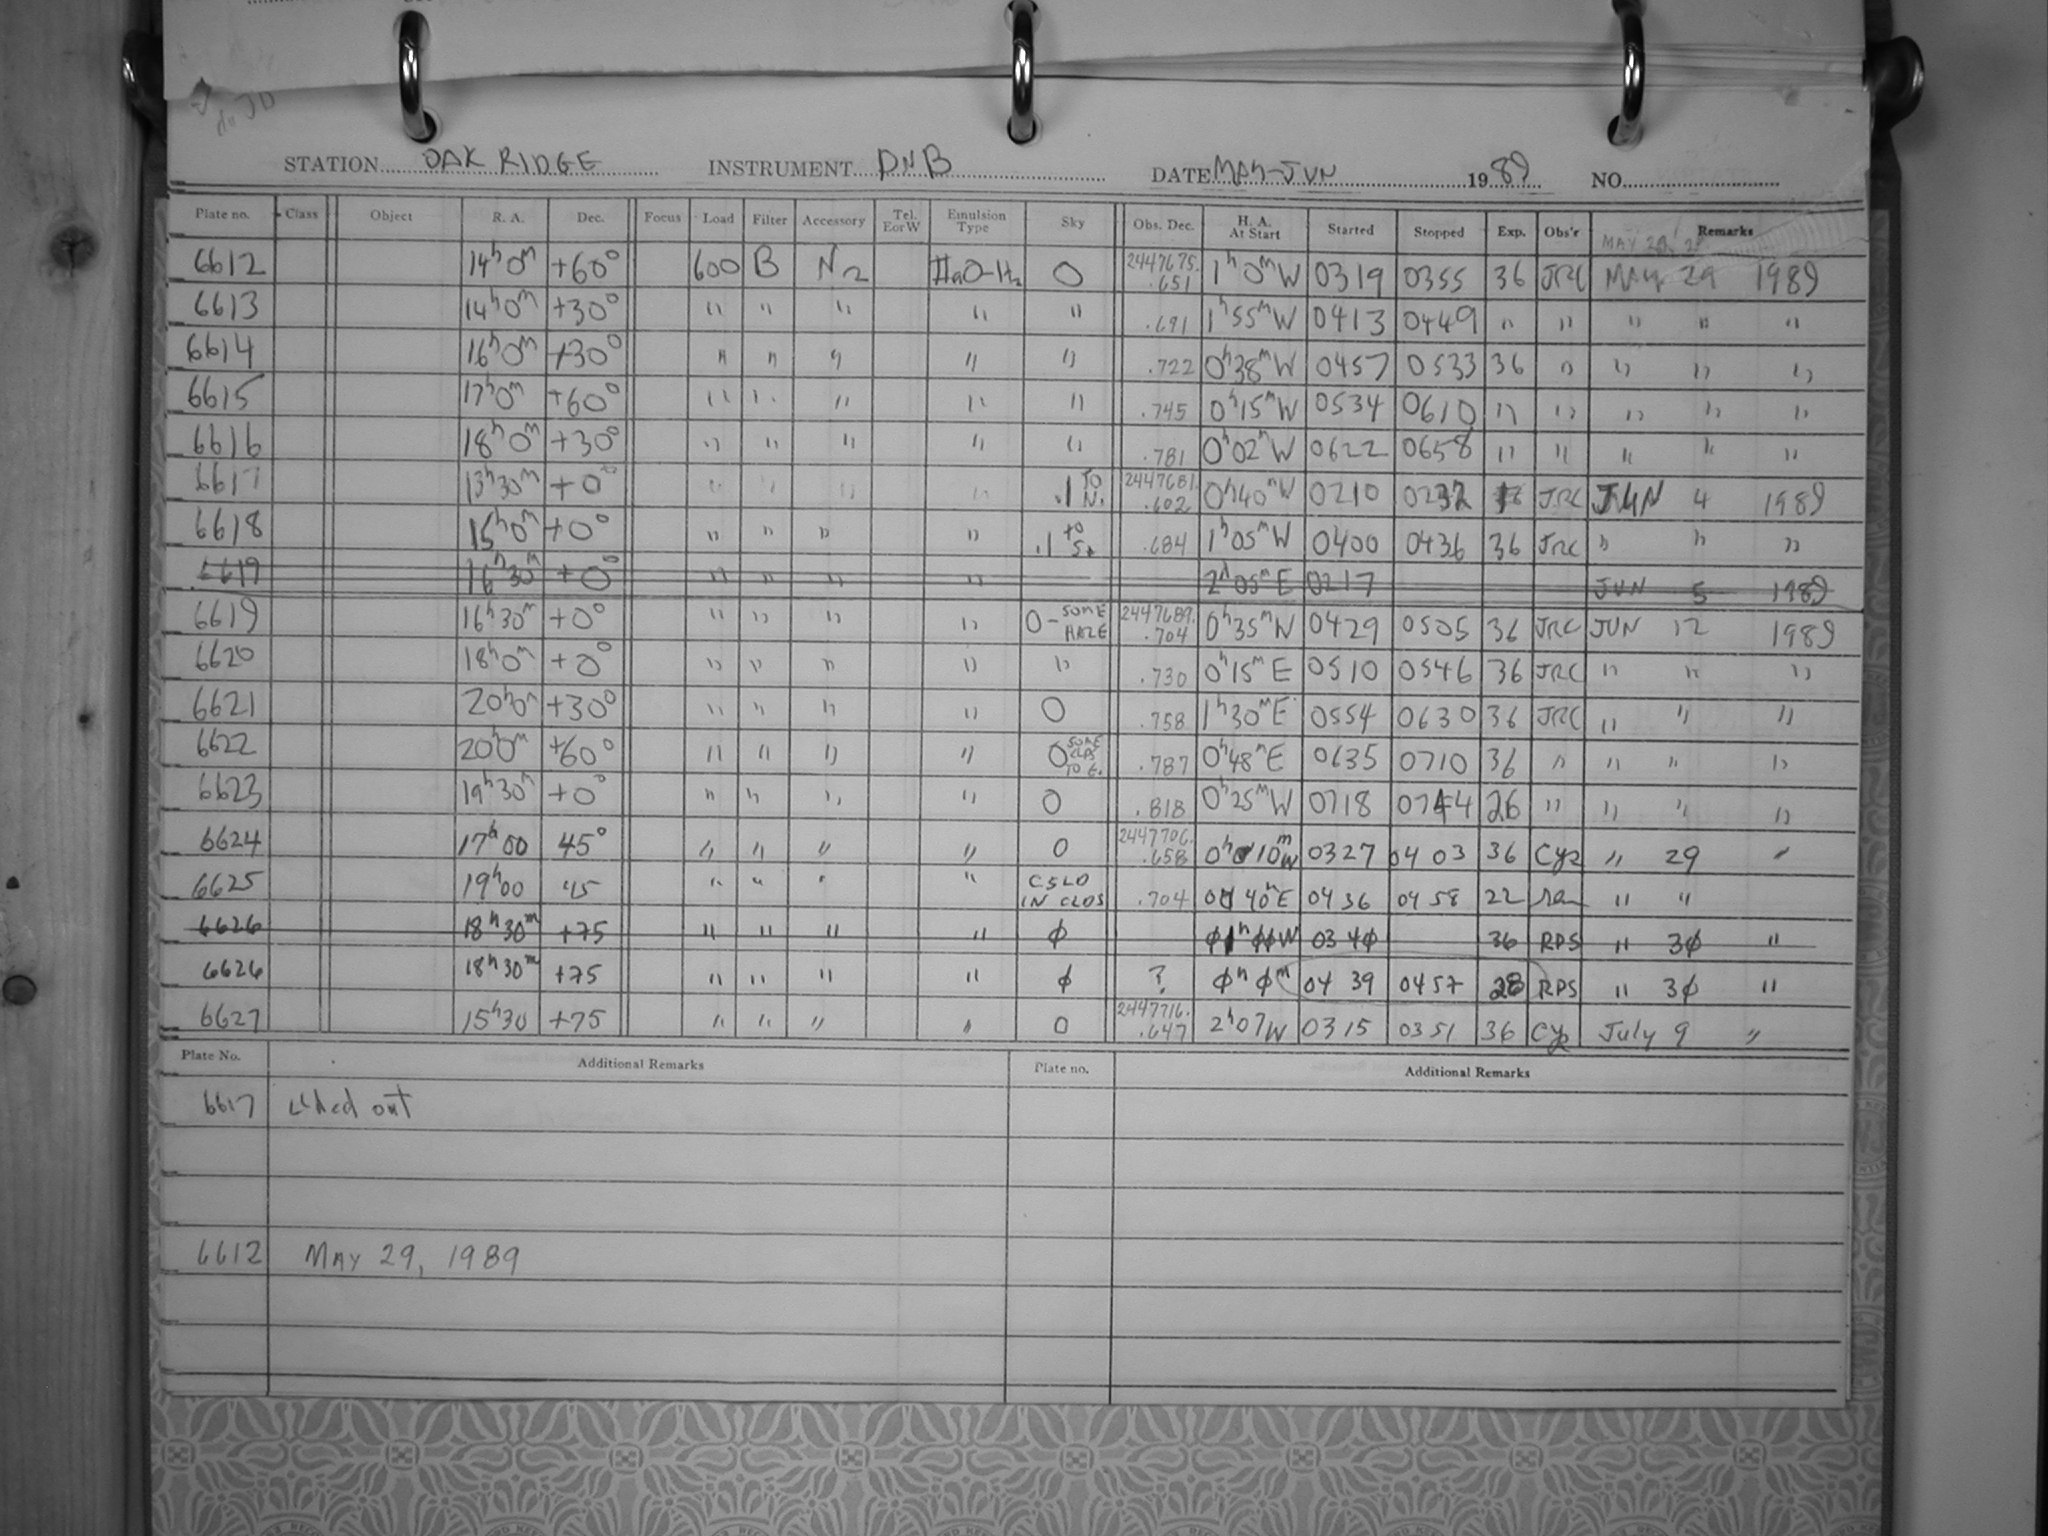 do JD
STATION OAK RIDGE INSTRUMENT DNB DATE MAY-JUN 1989 NO.
Plate no. Class Object R. A. Dec. Focus Load Filter Accessory Tel. E or W Emulsion Type Sky Obs. Dec. H. A. At Start Started Stopped Exp. Obs'r Remarks
6612 14h0m +60° 600 B N2 IIaO-H2 0 2447675. .651 1h0mW 0319 0355 36 JRC MAY 29 1989
6613 14h0m +30° " " " " " .691 1h55mW 0413 0449 " " " " "
6614 16h0m +30° " " " " " .722 0h38mW 0457 0533 36 " " " "
6615 17h0m +60° " " " " " .745 0h15mW 0534 0610 " " " " "
6616 18h0m +30° " " " " " .781 0h02mW 0622 0658 " " " " "
6617 13h30m +0° " " " " .1 TO N. 2447681. .602 0h40mW 0210 0232 18 JRC JUN 4 1989
6618 15h0m +0° " " " " .1 to S. .684 1h05mW 0400 0436 36 JRC " " "
6619 16h30m +0° " " " " 2h05mE 0217 JUN 5 1989
6619 16h30m +0° " " " " 0-SOME HAZE 2447689. .704 0h35mW 0429 0505 36 JRC JUN 12 1989
6620 18h0m +0° " " " " " .730 0h15mE 0510 0546 36 JRC " " "
6621 20h0m +30° " " " " 0 .758 1h30mE 0554 0630 36 JRC " " "
6622 20h0m +60° " " " " 0 SOME CLDS TO E. .787 0h48mE 0635 0710 36 " " " "
6623 19h30m +0° " " " " 0 .818 0h25mW 0718 0744 26 " " " "
6624 17h00 45° " " " " 0 2447706. .658 0h10mW 0327 0403 36 Cyz " 29 "
6625 19h00 45 " " " " CSLD IN CLDS .704 0h40mE 0436 0458 22 " "
6626 18h30m +75 " " " " ϕ 0340 36 RPS " 3ϕ "
6626 18h30m +75 " " " " ϕ ? ϕhϕm 0439 0457 28 RPS " 3ϕ "
6627 15h30 +75 " " " " 0 2447716. .647 2h07W 0315 0351 36 Cyz July 9 "
Plate No. Additional Remarks Plate no. Additional Remarks
6617 out
6612 MAY 29, 1989